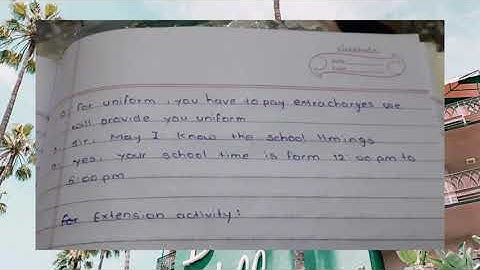 classmate
Date
Page
for uniform, you have to pay extracharges we
will provide you uniform
Sir, May I know the school timings
yes, your school time is form 12:00 pm to
5:00 pm
for Extension activity: